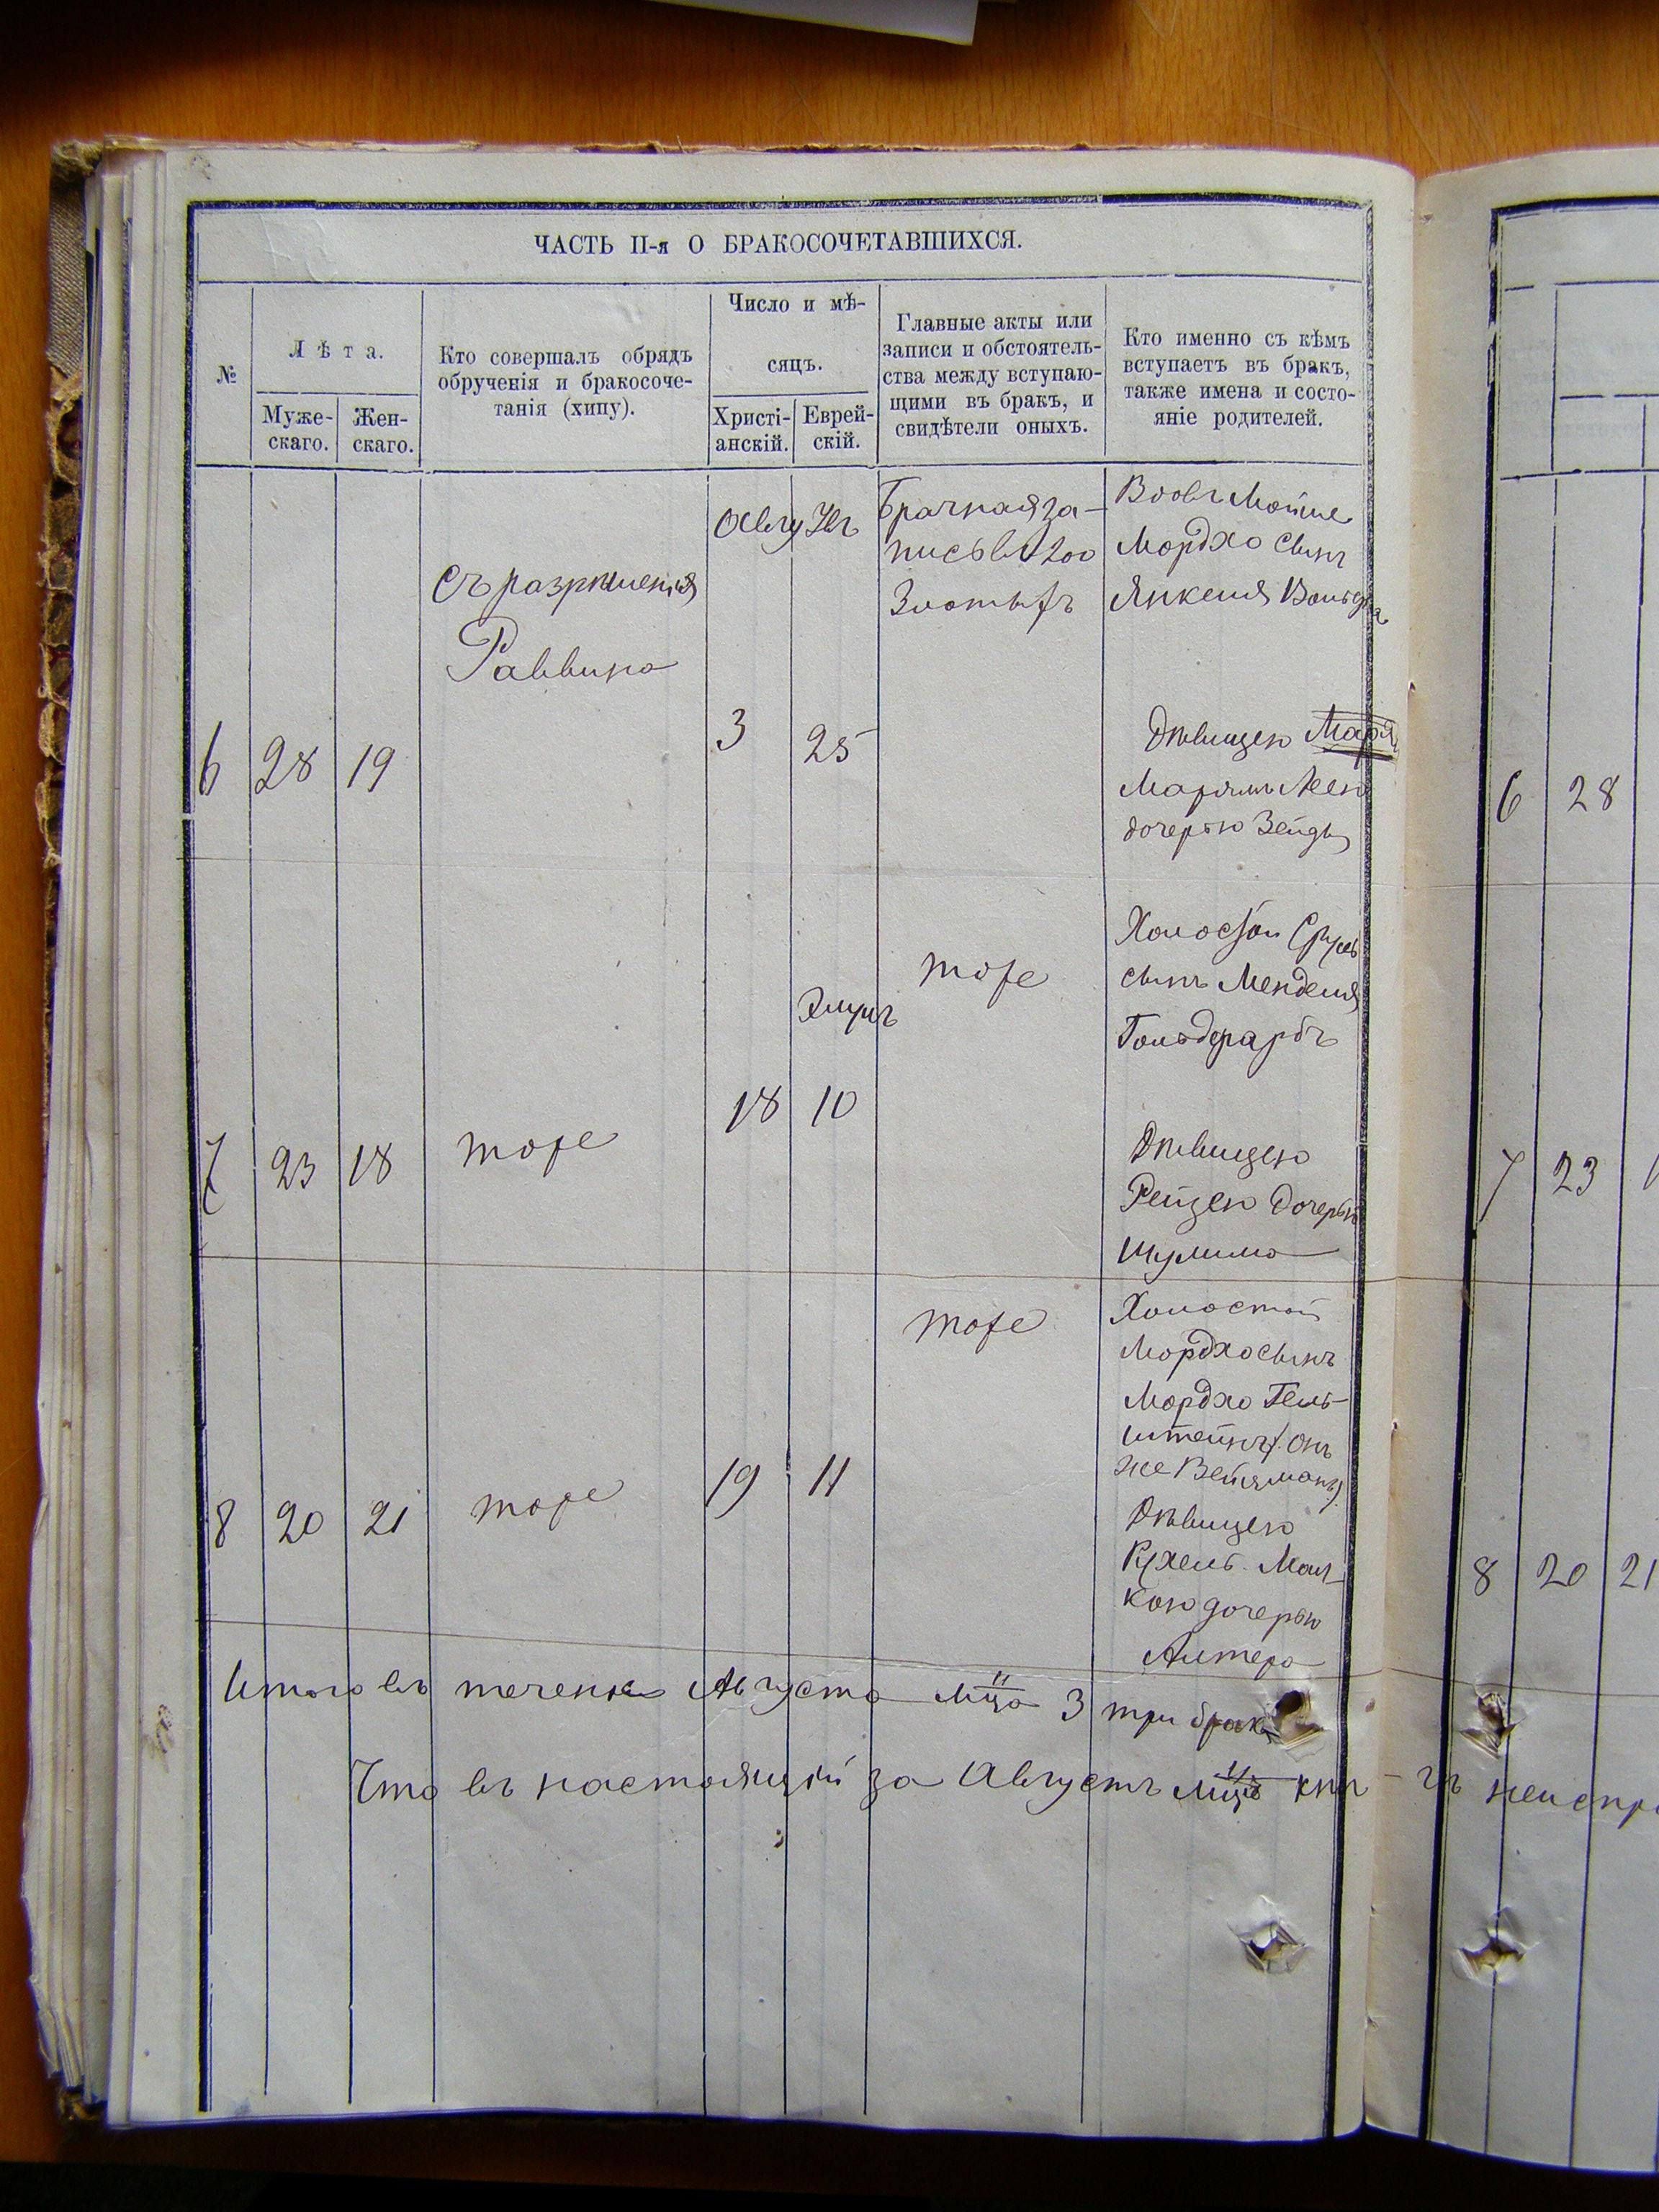 ЧАСТЬ II-я О БРАКОСОЧЕТАВШИХСЯ.
№
Лѣта.
Муже-
скаго.
Жен-
скаго.
Кто совершалъ обрядъ
обрученія и бракосоче-
танія (хипу).
Число и мѣ-
сяцъ.
Христі-
анскій.
Еврей-
скій.
Главные акты или
записи и обстоятель-
ства между вступаю-
щими въ бракъ, и
свидѣтели оныхъ.
Кто именно съ кѣмъ
вступаетъ въ бракъ,
также имена и состо-
яніе родителей.
6
28
19
съ разрѣшенія
Раввина
Авгу
3
25
Брачная за-
пись въ 200
Злотыхъ
Вовъ Мойше
Мордхо сынъ
Янкеля
Дѣвицею
Марямъ Леею
дочерью Зейды
7
23
18
тоже
18
Элулъ
10
тоже
Холостой Сруль
сынъ Менделя
Гольдфарбъ
Дѣвицею
Рейзею дочерью
Шулима
8
20
21
тоже
19
11
тоже
Холостой
Мордхо сынъ
Мордхо Гель-
штейнъ (онъ
же Вейцманъ)
Дѣвицею
Рухель Мал-
кою дочерью
Алтера
Итого въ теченіе Августа мца 3 три брака
Что въ настоящій за Августъ мцъ кни-гѣ
6 28
7 23
8 20 21